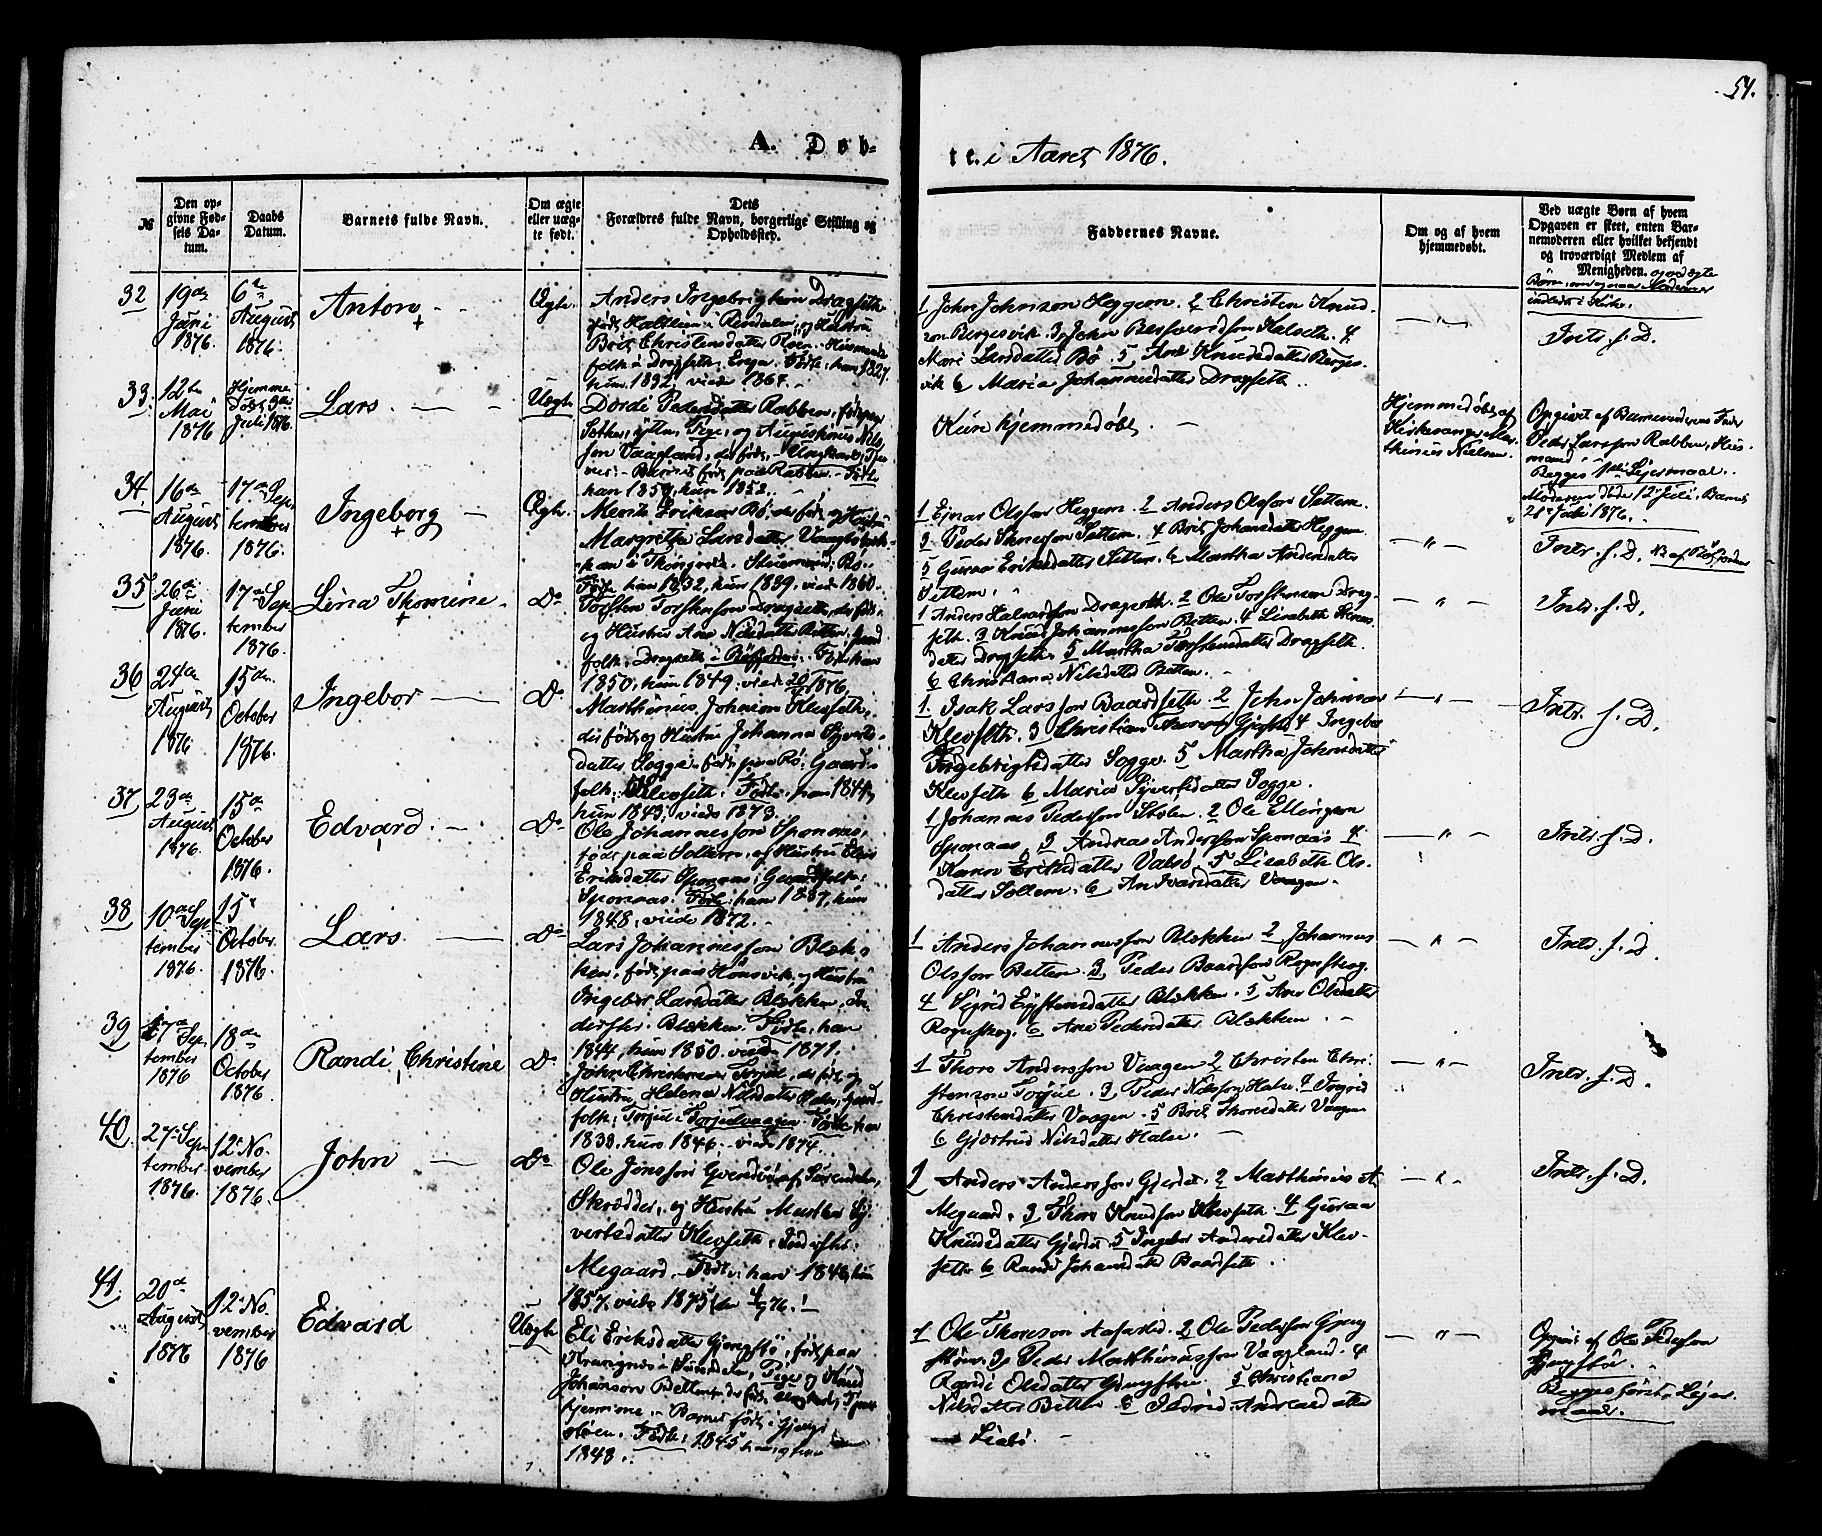 54.
A. Døb-
te. i Aaret 1876.
№
Den op-
givne Fød-
sels Da-
tum.
Daabs
Datum.
Barnets fulde Navn.
Om ægte
eller uæg-
te født.
Dets
Forældres fulde Navn, borgerlige Stilling og
Opholdssted.
Faddernes Navne.
Om og af hvem
hjemmedøbt.
Ved uægte Børn af hvem
Opgaven er skeet, enten Bar-
nemoderen eller hvilket bekjendt
og troværdigt Medlem af
Menigheden.
32
19de
Juni
1876.
6te
August
1876.
Anton
Ægte.
Anders Ingebrigtsen Dragseth
Brit Christensdatter
folk Dragseth. Født: han 1827,
hun 1832, viede 1867.
1 John Johnson Heggem. 2 Christen Knud-
son Bergesvik. 3 John Halseth. 4
Mari Larsdatter Bø 5 Ane Knudsdatter Berges-
vik 6 Maria Johannesdatter Dragseth
Intr. f. D.
33
12te
Mai
1876
Hjemme
døbt 9de
Juli 1876.
Lars.
Uægte
Dordi Pedersdatter Rabben, født paa
Pige, og Augustinus Nils-
son Vaagland, der født, Ungkarl,
Barnet født paa Rabben. Født
han 1857, hun 1852.
Kun hjemmedøbt.
Hjemmedøbt af
Kirkesanger Mar-
thinus Nielsen.
Opgivet af Barnemoderens Fader
Peder Larsson Rabben, Huus-
mand.
Begges 1ste Leiermaal.
Moderen døde 12 Juli, Barnet
21de Juli 1876.
34
16de
August
1876.
17de Sep-
tember
1876.
Ingeborg
Ægte.
Bø, der født, og Hustru
Margrethe Larsdatter
Født han 1832, hun 1839, viede 1860.
1 Ejnar Olsson Heggem. 2 Anders Olsson Settem.
3 Peder Settem. 4 Brit Johansdatter Heggem.
5 Guraa Eriksdatter Settem. 6 Martha Andersdatter
Settem.
Intr. f. D.
35
26de
Juni
1876.
17de Sep-
tember
1876.
Lina Thomine
Do
Torsten Torstenson Dragseth, der født,
og Hustru Ane Nilsdatter Betten, Gaard-
folk, Dragseth i Bøfjorden. Født: han
1850, hun 1849, viede 1876.
1 Anders Halvorson Dragseth. 2 Ole Torstenson Drag-
seth. 3 Knud Johannesson Betten. 4 Lisabeth
datter Dragseth. 5 Martha Torstensdatter Dragseth.
6 Christiana Nilsdatter Betten.
Intr. f. D.
36
24de
August
1876
15de
October
1876.
Ingebor
Do
Marthinus Johnson Klevseth,
der født, og Hustru Johanna Syverts-
datter Sogge, født paa Rø. Gaard-
folk, Klevseth. Født: han 1844,
hun 1843, viede 1873.
1. Isak Larsson Baardseth. 2 John Johnson
Klevseth. 3 Christian Gjerdet 4 Ingebor
Ingebrigtsdatter Sogge. 5 Martha Johnsdatter
Klevseth 6 Maria Syvertsdatter Sogge.
Intr. f. D.
37
23de
August
1876.
15de
October
1876.
Edvard.
Do
Ole Johannesson Sponaas,
født paa Solem, og Hustru
Eriksdatter Sponaas; Gaardfolk
Sponaas. Født: han 1837, hun
1848, viede 1872.
1 Johannes Pederson Skolen. 2 Ole Ellingson
Sponaas. 3 Andreas Andersson Sponaas 4
Karen Eriksdatter Valsø. 5 Lisabeth Ols-
datter Solem. 6 Ane Ivarsdatter Vaagen.
Intr. f. D.
38
10de Sep-
tember
1876.
15de
October
1876.
Lars.
Do
Lars Johannesson Blekk-
en, født paa Honsvik, og Hustru
Ingebor Larsdatter Blekken. In-
derster. Blekken. Født: han
1844, hun 1850. viede 1871.
1 Anders Johannesson Blekken 2 Johannes
Olsson Betten. 3 Peder Baardson Rognskog.
4 Sigrid Eystensdatter Blekken. 5 Ane Olsdatter
Rognskog. 6 Ane Pedersdatter Blekken.
Intr. f. D.
39
17de Sep-
tember
1876
18de
October
1876.
Randi Christine
Do
John Christenson Torjul, der født, og
Hustru Helena Nilsdatter Halse, Gaard-
folk, Torjul i Torjulvaagen. Født: han
1838, hun 1846. viede 1874.
1 Thore Andersson Vaagen 2 Christen Chri-
stenson Torjul. 3 Peder Nilsson Halse. 4 Ingrid
Christensdatter Vaagen. 5 Brit Thoresdatter Vaagen
6 Gjertrud Nilsdatter Halse.
Intr. f. D.
40.
27de Sep-
tember
1876.
12te No-
vember
1876.
John
Do
Ole Jonsson af Surendalen,
Skrædder, og Hustru Marthe Sy-
vertsdatter Klevseth, Inderster
Megaard. Født: han 1846, hun
1857. viede 1875
1 Anders Andersson Gjerdet. 2 Marthinus
Megaard. 3 Thore Knudson Klevseth. 4 Guraa
Knudsdatter Gjerdet. 5 Ingebor Andersdatter Klev-
seth. 6 Randi Johansdatter Baardseth.
Intr. f. D.
41.
20de
August
1876
12te No-
vember
1876
Edvard
Uægte
Eli Eriksdatter Gjengstø, født paa
Krangnes i Surendalen, Pige, og Knud
Johanson Betten, der født, Ungkarl,
Hjemme. Barnet født i Gjeng-
støen. Født: 1845 han og hun
1848.
1 Ole Thoreson Aasarød. 2 Ole Pederson Gjeng-
støen. 3 Peder Marthinusson Vaagland. 4
Randi Olsdatter Gjengstøen. 5 Christiana
Nilsdatter Betten 6 Andreasdatter
Opgivet af Ole Pedersson
Gjengstøe.
Begges første Leier-
maal.